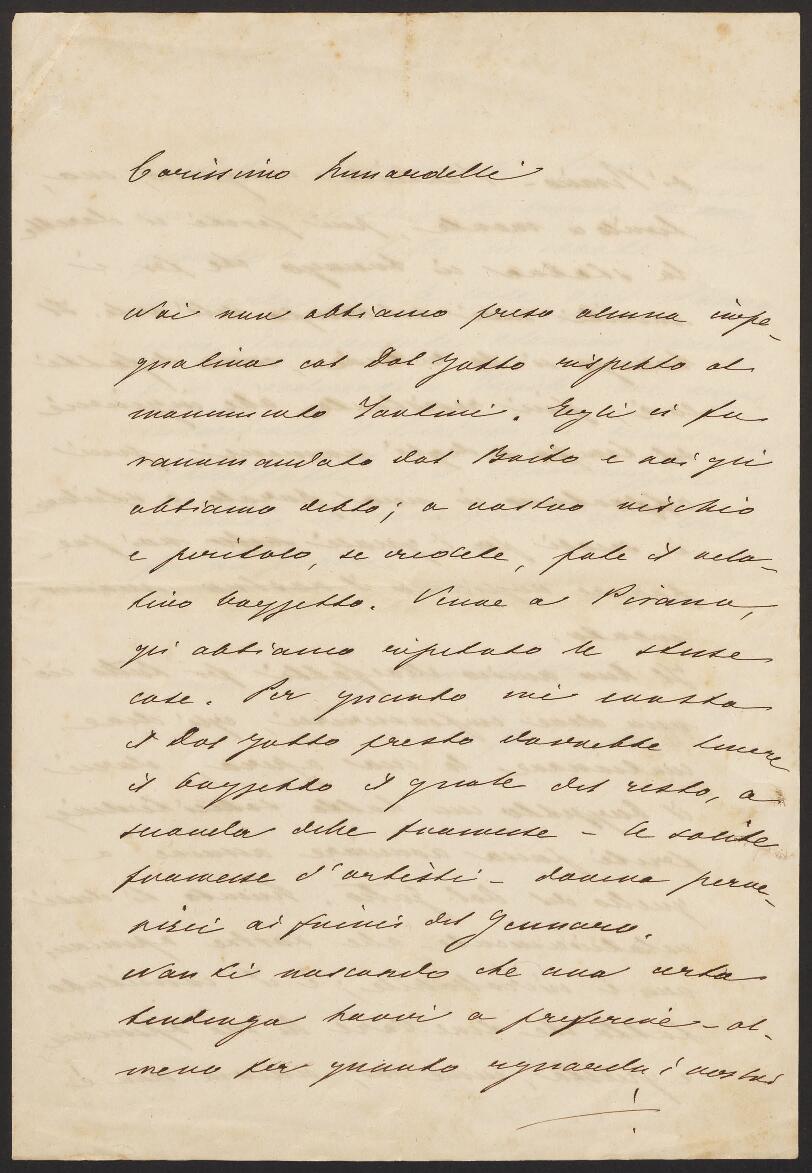 Carissimo Lunardelli
Noi non abbiamo preso alcuna impe-
gnativa col Dal Zotto rispetto al
monumento Tartini. Egli ci fu
raccomandato dal Boito e noi gli
abbiamo detto; a vostro rischio
e pericolo, se credete, fate il rela-
tivo bozzetto. Venne a Pirano,
gli abbiamo ripetuto le stesse
cose. Per quanto mi consta
il Dal Zotto presto dovrebbe tenere
il bozzetto il quale del resto, a
seconda delle promesse – le solite
promesse d'artisti – doveva perve-
nirci ai primi del Gennaro.
Non ti nascondo che una certa
tendenza havvi a preferire – al-
meno per quanto riguarda i nostri